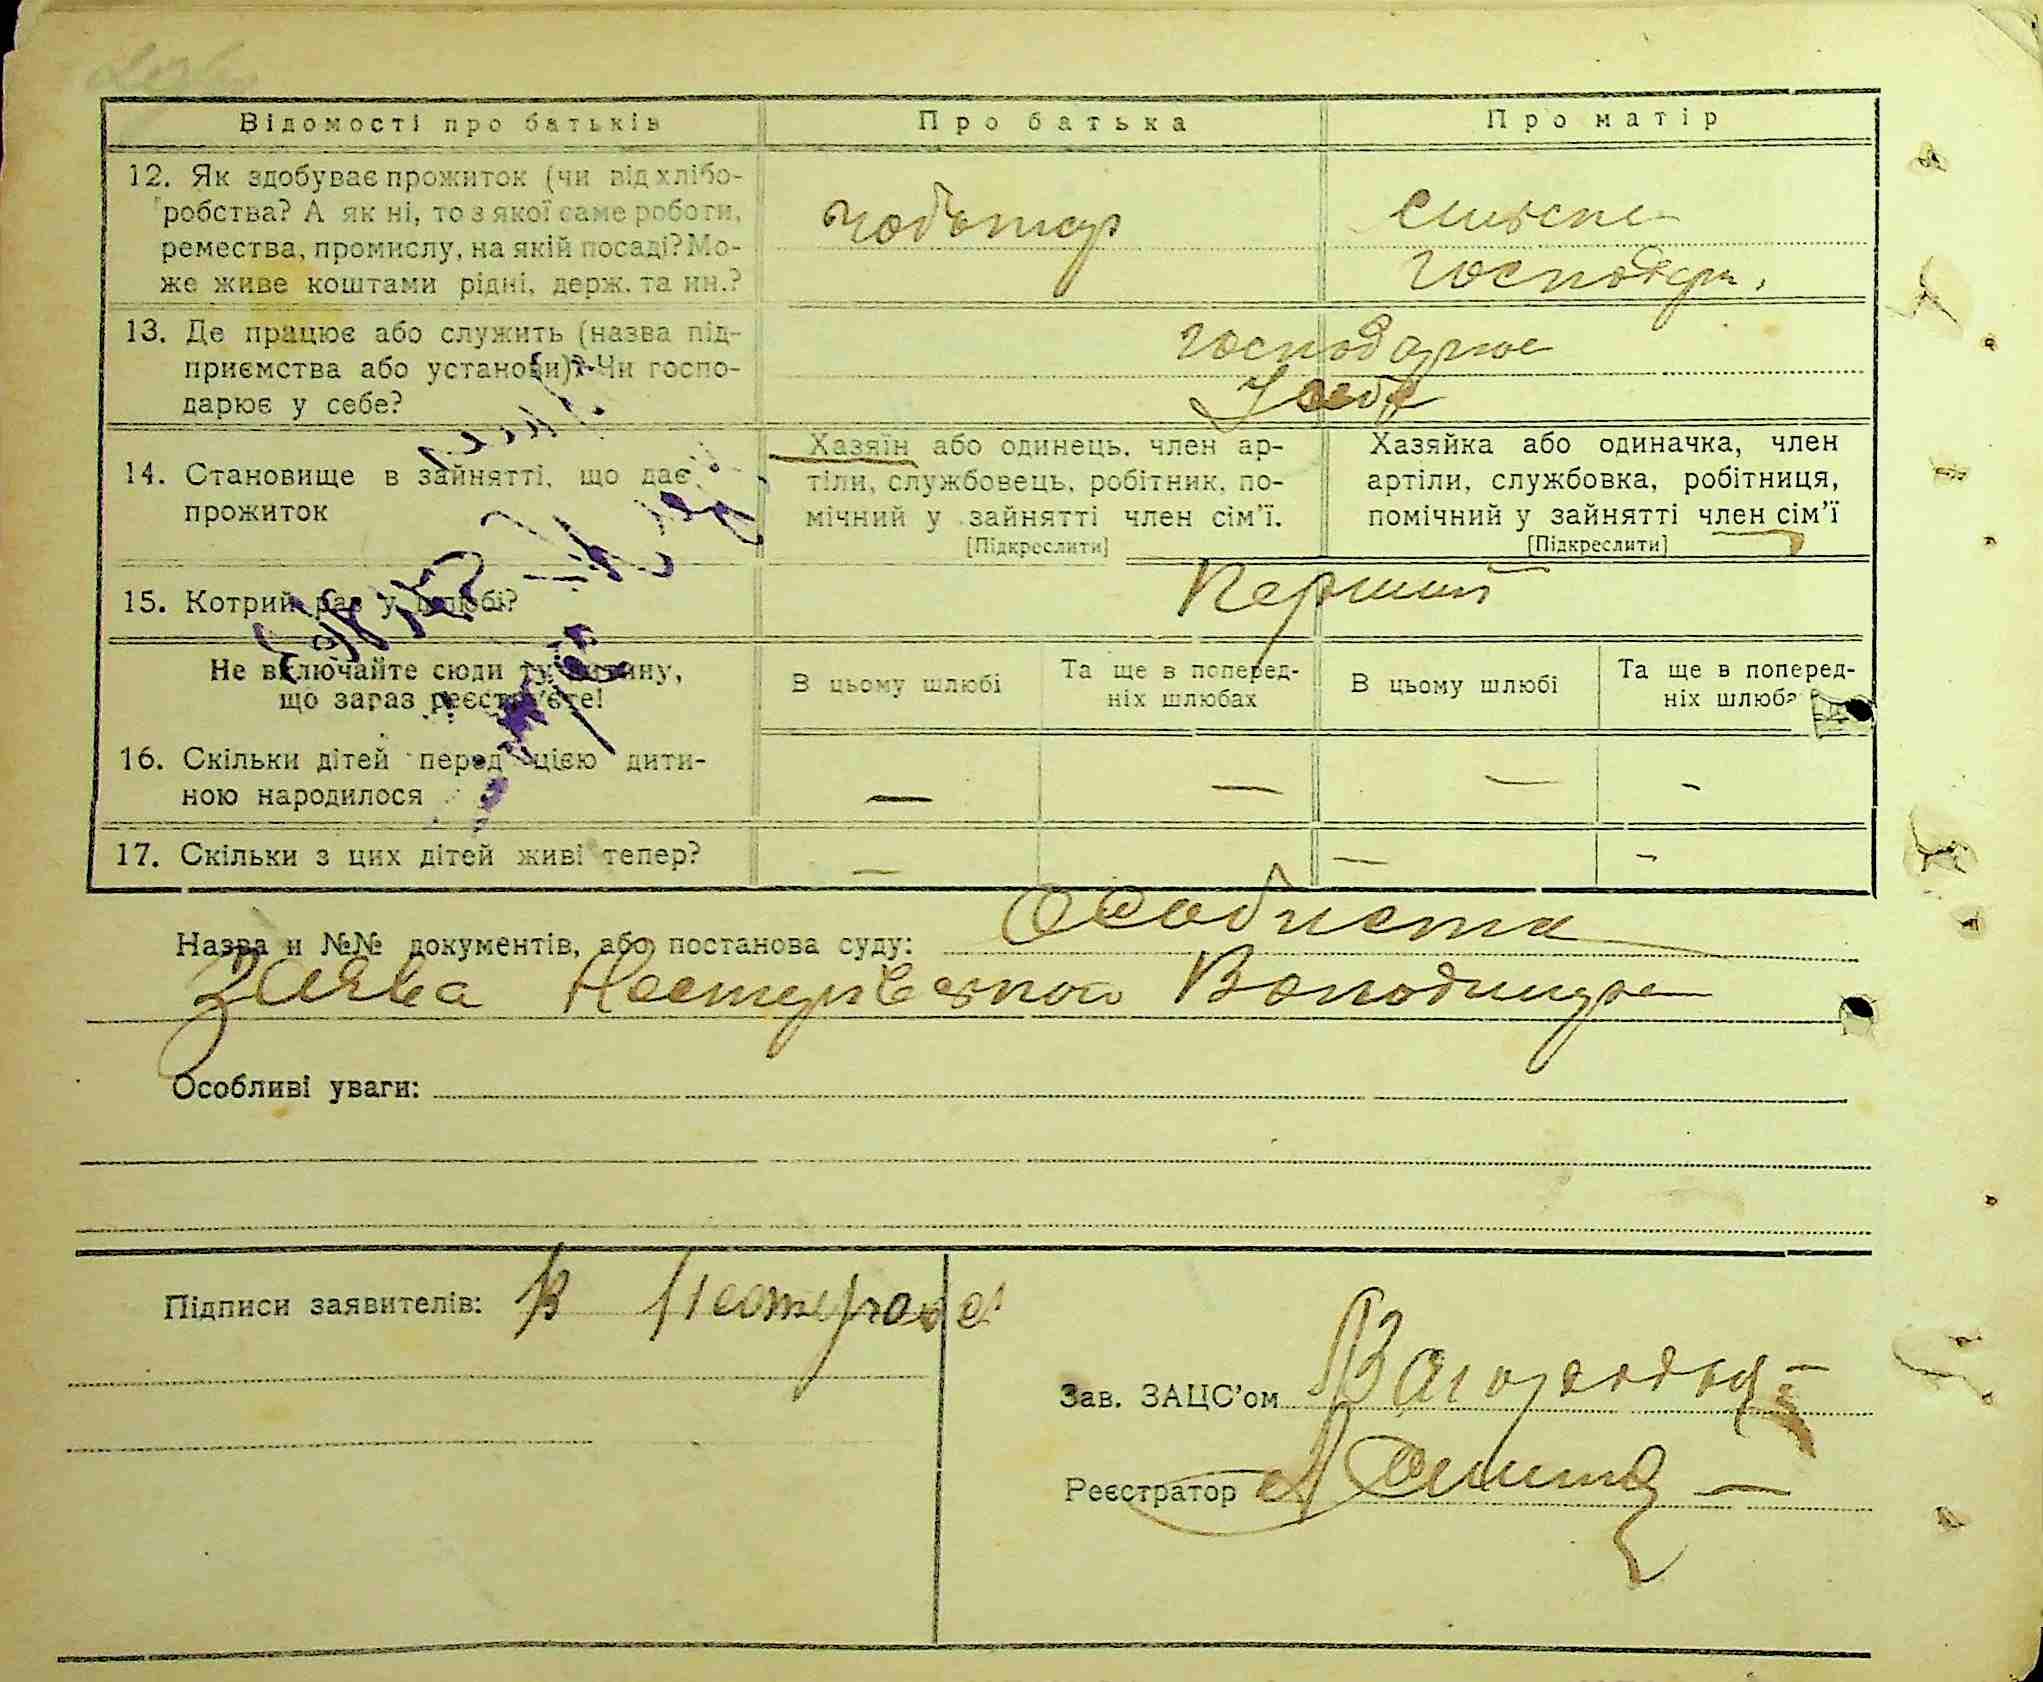 Відомості про батьків Про батька Про матір
12. Як здобуває прожиток (чи від хлібо-
робства? А як ні, то з якої саме роботи,
ремества, промислу, на якій посаді? Мо-
же живе коштами рідні, держ. та ин.?
чоботар
сільске
господар.
13. Де працює або служить (назва під-
приємства або установи)? Чи госпо-
дарює у себе?
господарює
у себе
14. Становище в зайнятті, що дає
прожиток
Хазяїн або одинець, член ар-
тіли, службовець, робітник, по-
мічний у зайнятті член сім'ї.
[Підкреслити]
Хазяйка або одиначка, член
артіли, службовка, робітниця,
помічний у зайнятті член сім'ї
[Підкреслити]
15. Котрий раз у шлюбі?
Перший
Не включайте сюди ту дитину,
що зараз реєструєте!
В цьому шлюбі
Та ще в поперед-
ніх шлюбах
В цьому шлюбі
Та ще в поперед-
ніх шлюба
16. Скільки дітей перед цією дити-
ною народилося
— — — -
17. Скільки з цих дітей живі тепер?
— — -
Назва и №№ документів, або постанова суду: Особиста
заява Володимира
Особливі уваги:
Підписи заявителів: В
Зав. ЗАЦС'ом
Реєстратор